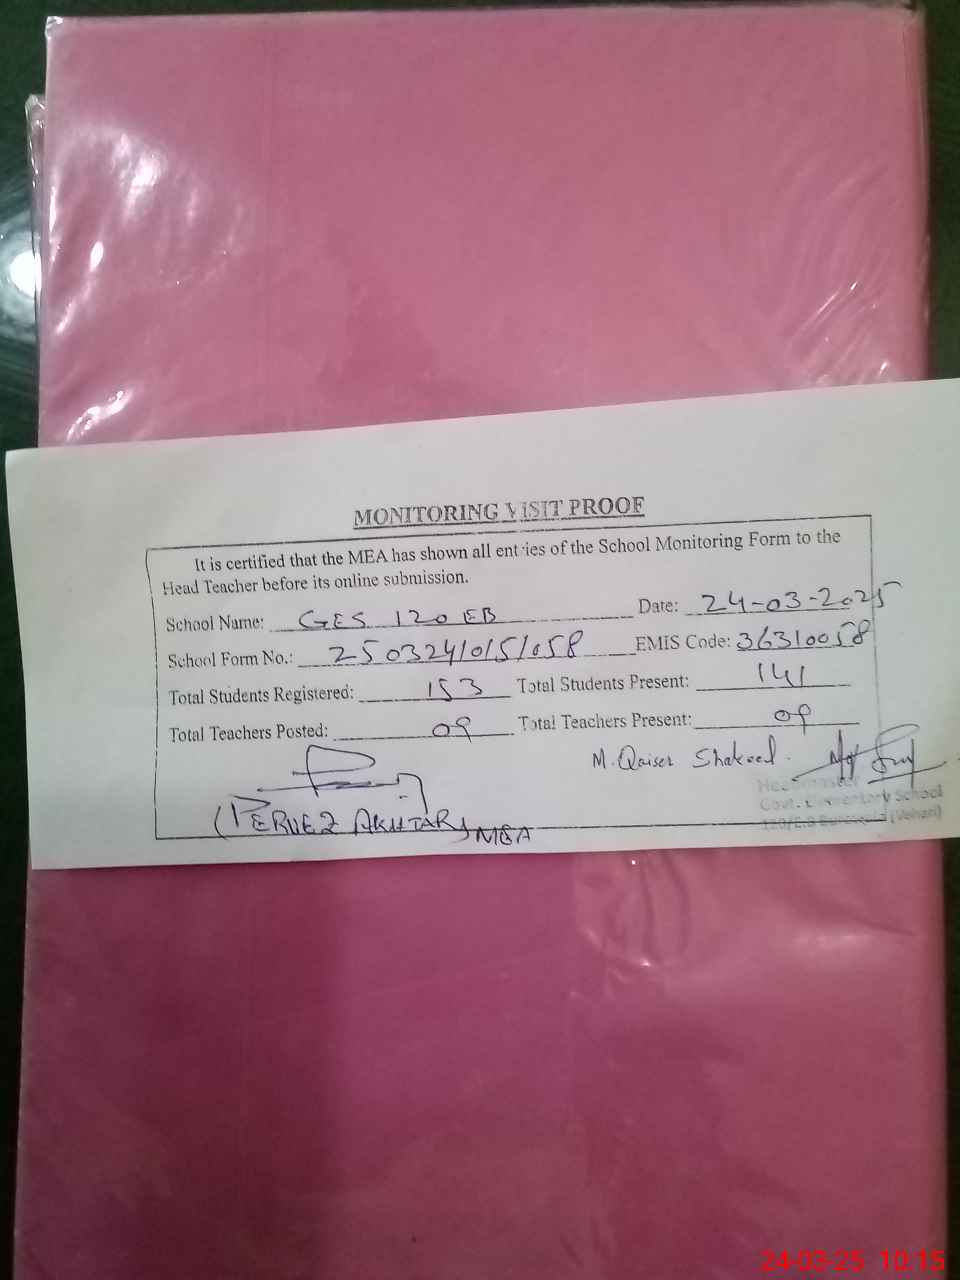 MONITORING VISIT PROOF
It is certified that the MEA has shown all entries of the School Monitoring Form to the
Head Teacher before its online submission.
School Name: GES 120 EB Date: 24-03-2025
School Form No.: 25032410151058 EMIS Code: 36310058
Total Students Registered: 153 Total Students Present: 141
Total Teachers Posted: 09 Total Teachers Present: 09
M. Qaiser Shakeel.
Headmaster
Govt. Elementary School
120/E.B Burewala (Vehari)
(PERVEZ AKHTAR) MEA
24-03-25 10:15